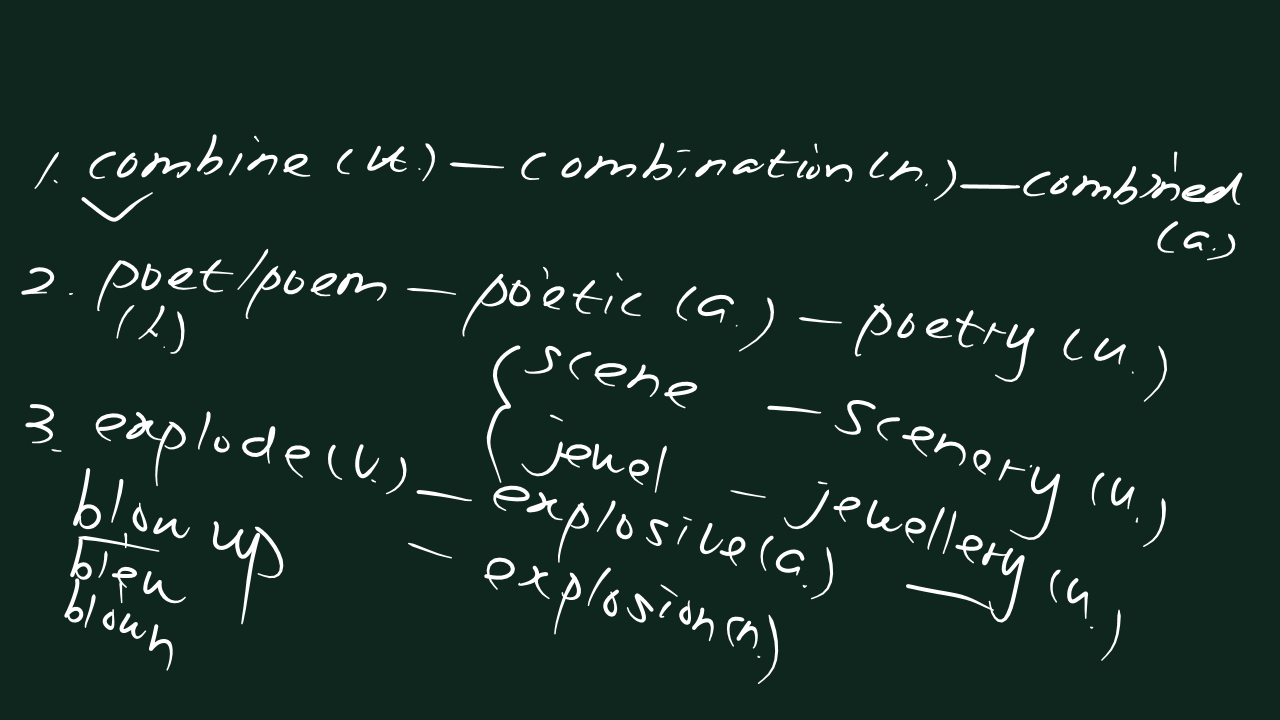 1. combine (vt.) — combination (n.) — combined
(a.)
2. poet/poem — poetic (a.) — poetry (u.)
(c.)
scene — scenery (u.)
jewel — jewellery (u.)
3. explode (v.) — explosive (a.)
blow up — explosion (n.)
blew
blown